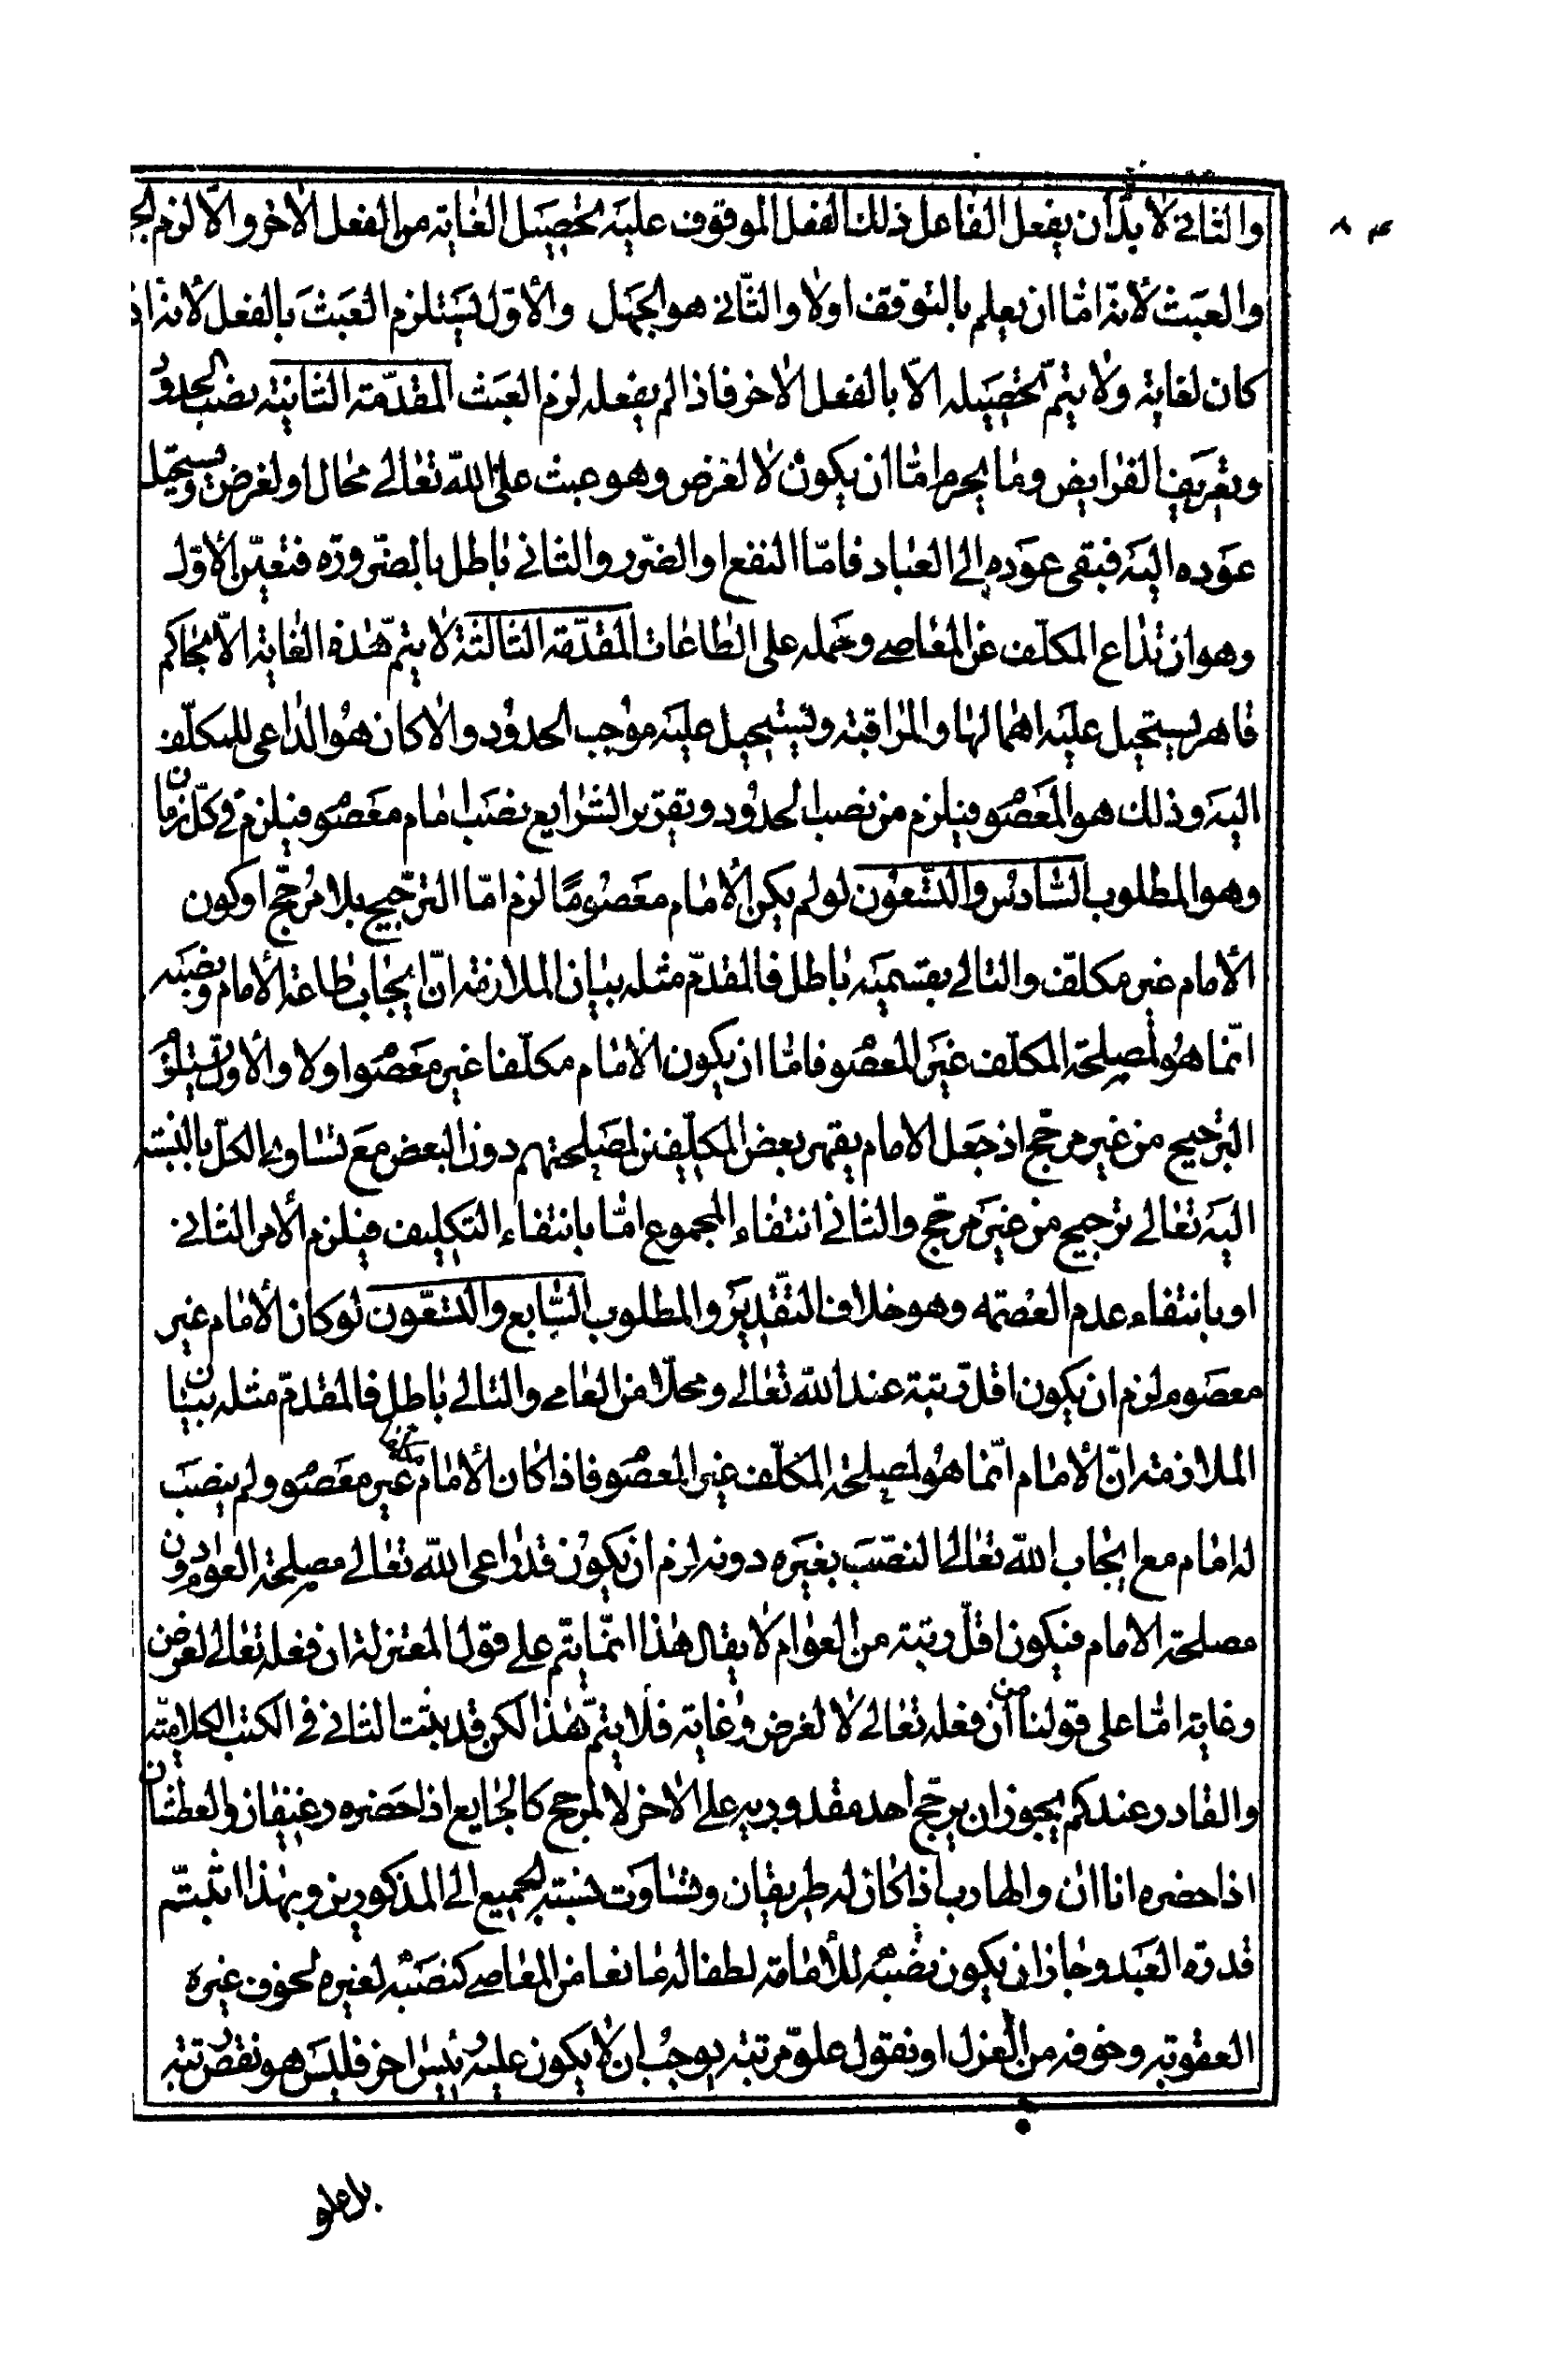 والثاني لا بدّ ان يفعل الفاعل ذلك الفعل الموقوف عليه تحصيل الغاية من الفعل الاخر والّا لزم الج
والعبث لانّه امّا ان يعلم بالتوقف اولا والثّاني هو الجهل والأوّل يستلزم العبث بالفعل لأنه اذ
كان لغاية ولا يتمّ تحصيله الّا بالفعل الاخر فاذا لم يفعله لزم العبث المقدّمة الثانية نصب الحدود
وتعريف الفرايض وما يحرم امّا ان يكون لا لغرض وهو عبث على الله تعالى محال او لغرض ويستحيل
عوده اليه فبقى عوده الى العباد فامّا النفع او الضّرر والثاني باطل بالضّرورة فتعيّن الأوّل
وهو ارتداع المكلّف عن المعاصي وحمله على الطاعات المقدّمة الثالثة لا يتمّ هذه الغاية الّا بحاكم
قاهر يستحيل عليه اهمالها والمراقبة ويستحيل عليه موجب الحدود والا كان هو الداعى للمكلّف
اليه وذلك هو المعصوم فيلزم من نصب الحدود وتقرير الشرايع نصب امام معصوم فيلزم في كلّ زمان
وهو المطلوب السّادس والتسعون لو لم يكن الأمام معصومًا لزم امّا الترجيح بلا مرجّح او كون
الأمام غير مكلّف والتالي بقسميه باطل فالمقدّم مثله بيان الملازمة انّ ايجاب طاعة الأمام ونصبه
انّما هو لمصلحة المكلّف غير المعصوم فامّا ان يكون الأمام مكلّفا غير معصوم اولا والأوّل يستلزم
الترجيح من غير مرجّح اذ جعل الامام يقهر بعض المكلّفين لمصلحتهم دون البعض مع تساوي الكلّ بالنسبة
اليه تعالى ترجيح من غير مرجّح والثاني انتفاء المجموع امّا بانتفاء التكليف فيلزم الأمر الثاني
او بانتفاء عدم العصمة وهو خلاف التقدير والمطلوب السّابع والتسعون لو كان الأمام غير
معصوم لزم ان يكون اقلّ رتبة عند الله تعالى ومحلّا من العامي والتالي باطل فالمقدّم مثله بيان
الملازمة انّ الأمام انّما هو لمصلحة المكلّف غير المعصوم فاذا كان الأمام غير معصوم ولم ينصب
له امام مع ايجاب الله تعالى النصب بغيره دونه لزم ان يكون قد راعى الله تعالى مصلحة العوام دون
مصلحة الامام فيكون اقلّ رتبة من العوام لا يقال هذا انّما يتم على قول المعتزلة ان فعله تعالى لغرض
وغاية امّا على قولنا من أن فعله تعالى لا لغرض وغاية فلا يتمّ هذا لكن قد يثبت الثاني في الكتب الكلاميّة
والقادر عندكم يجوز ان يرجّح أحد مقدوريه على الاخر لا لمرجح كالجايع اذا حضره رغيفان والعطشان
اذا حضره اناان والهارب اذا كان له طريقان وتساوت نسبة الجميع الى المذكورين وبهذا اثبتّم
قدرة العبد وجاز ان يكون نصبه للأمامة لطفا له مانعا من المعاصي كنصبه لغيره لخوف غيره
العقوبة وخوفه من العزل او نقول علوّ مرتبته يوجب ان لا يكون عليه رئيس اخر فليس هو نقص رتبته
بل علو